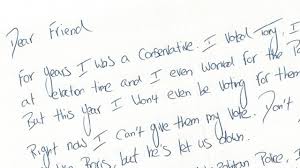 Dear Friend
For years I was a Conservative. I voted Tory, I
at election time and I even worked for the
But this year I won't even be voting for them
Right now I can't give them my vote. Don't
Boris, but he's let us down.
Police, I